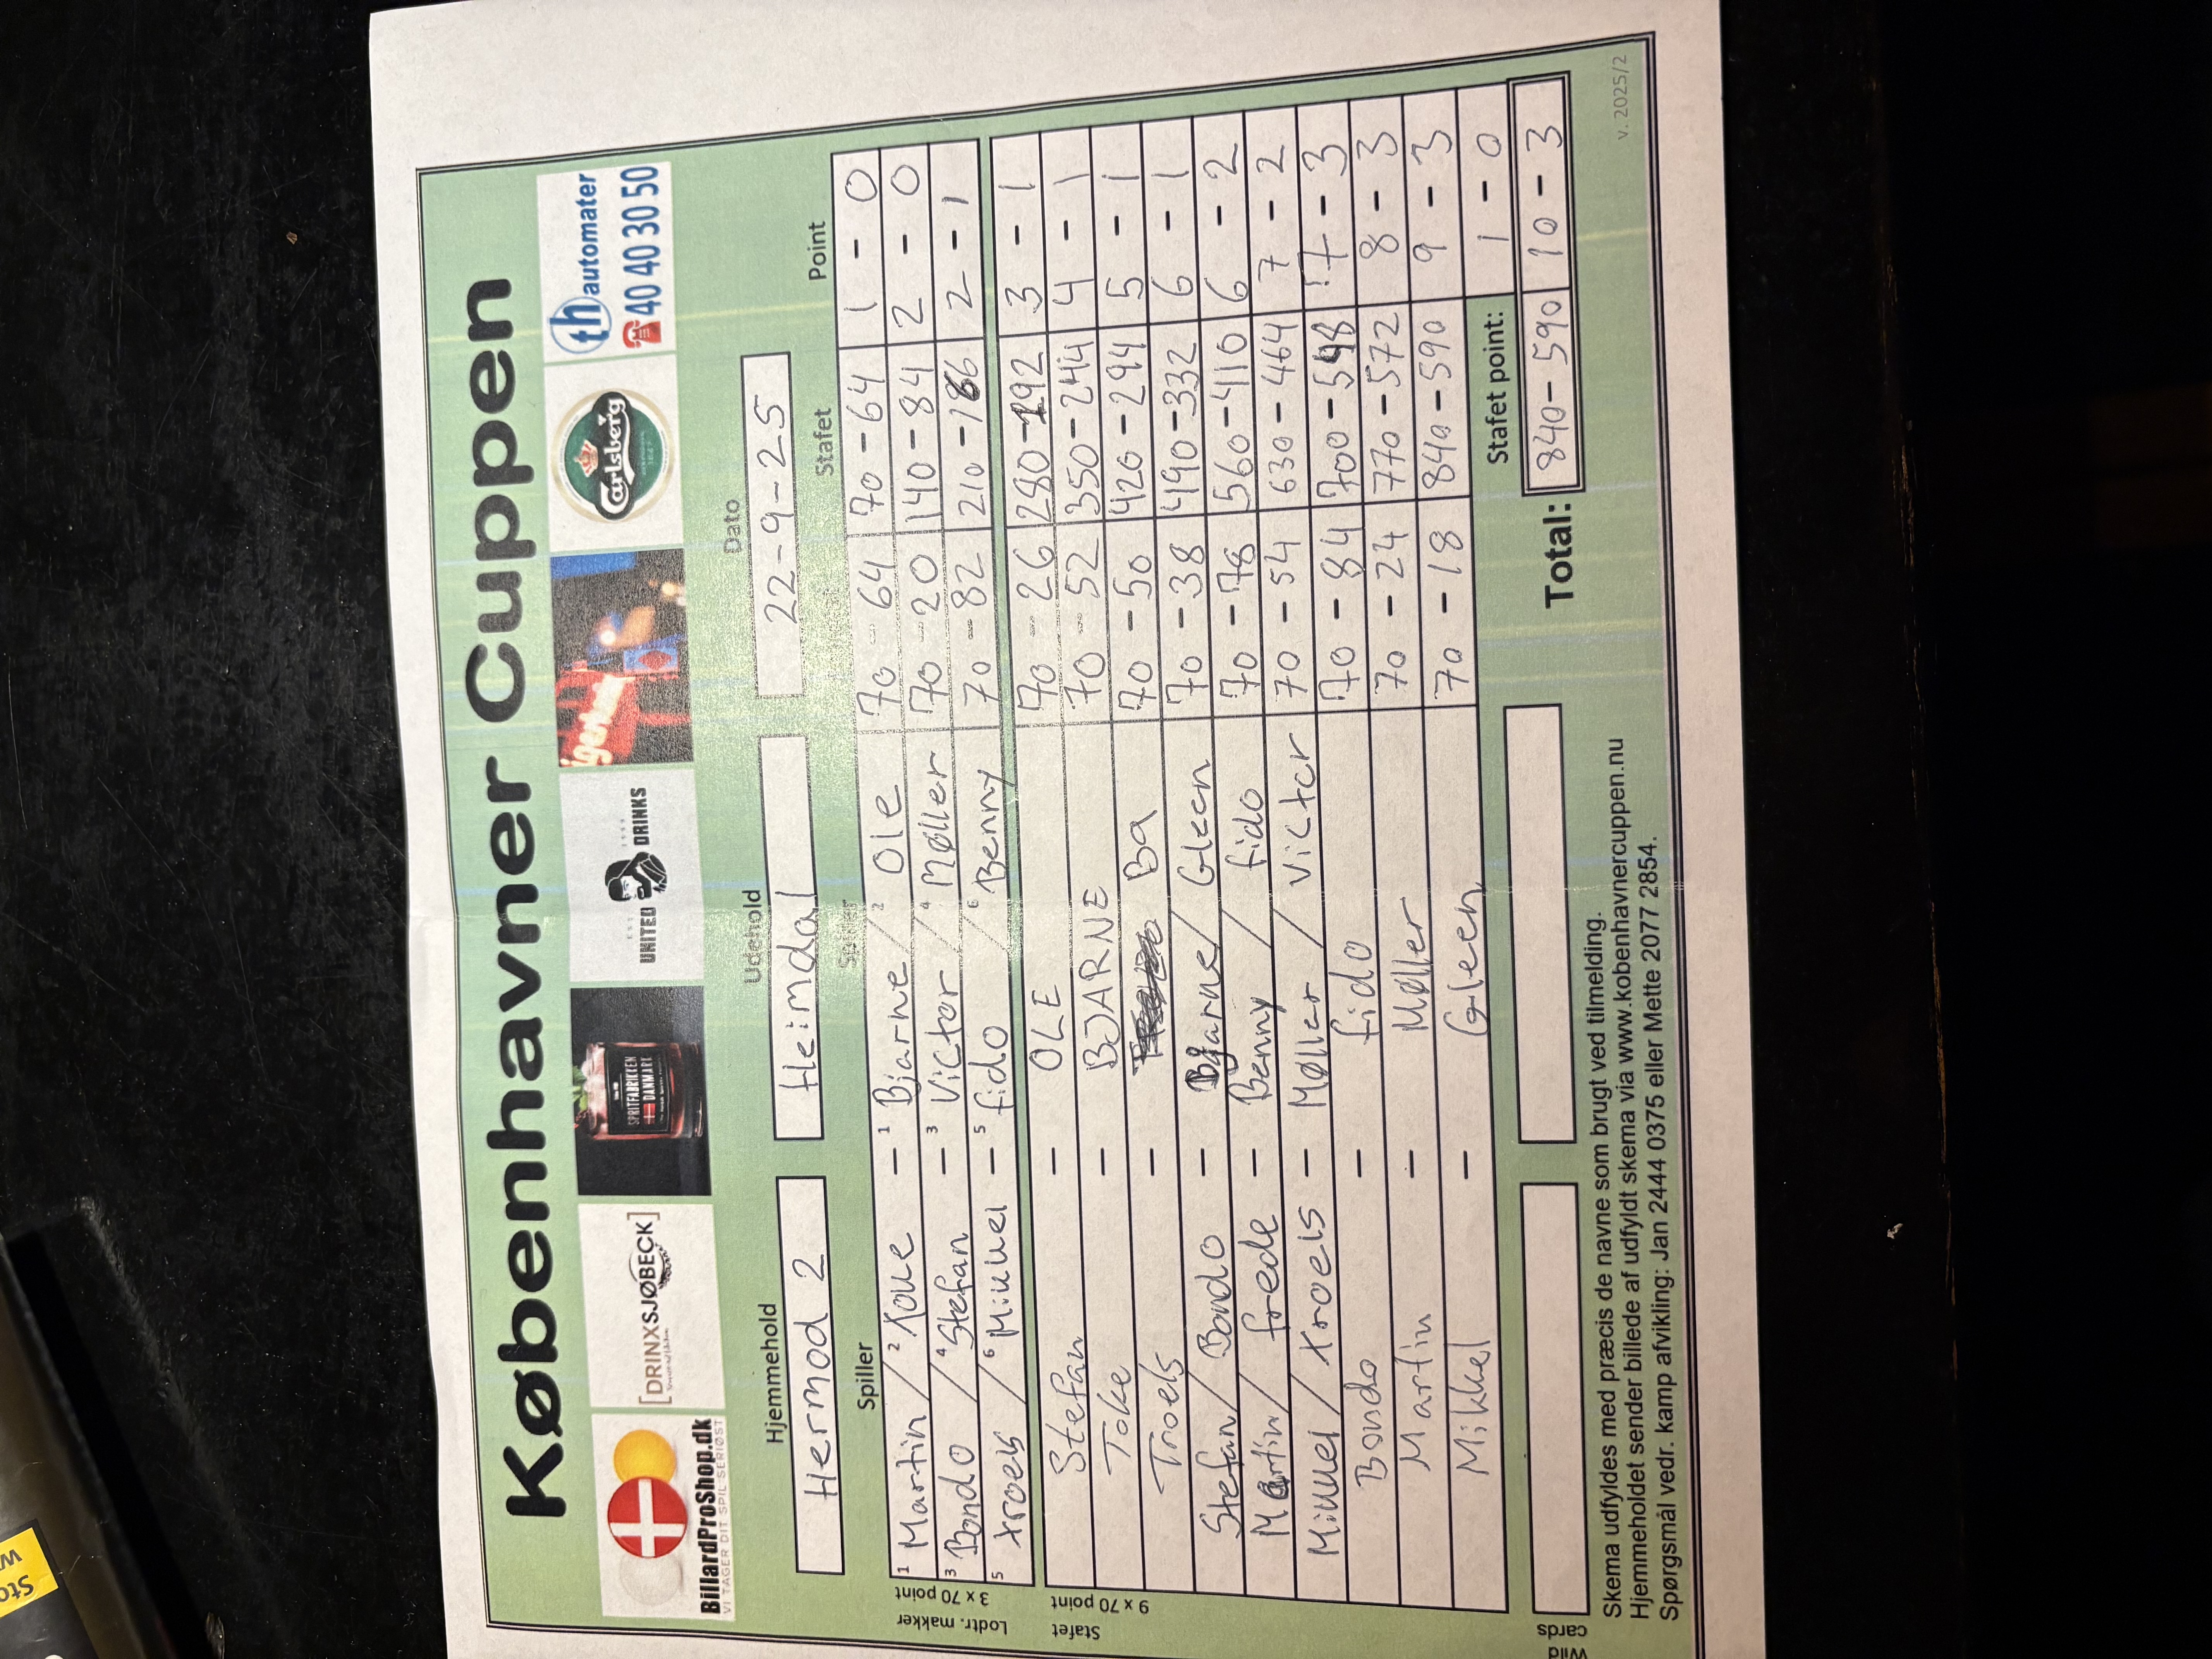 Københavner Cuppen
BillardProShop.dk
VI TAGER DIT SPIL SERIØST
[DRINXSJØBECK]
SPRITFABRIKKEN
DANMARK
UNITED DRINKS
Carlsberg
th automater
40 40 30 50
Hjemmehold Udehold Dato
Hermod 2 Heimdal 22-9-25
Spiller Spiller Stafet Point
Lodtr. makker
3 x 70 point
1 Martin / 2 Toke - 1 Bjarne / 2 Ole 70 - 64 70 - 64 1 - 0
3 Bondo / 4 Stefan - 3 Victor / 4 Møller 70 - 20 140 - 84 2 - 0
5 troels / 6 Mikkel - 5 fido / 6 Benny 70 - 82 210 - 166 2 - 1
Stafet
9 x 70 point
Stefan - OLE 70 - 26 280 - 192 3 - 1
Toke - BJARNE 70 - 52 350 - 244 4 - 1
Troels - Ba 70 - 50 420 - 294 5 - 1
Stefan / Bondo - Bjarne / Gleen 70 - 38 490 - 332 6 - 1
Martin / frede - Benny / fido 70 - 78 560 - 410 6 - 2
Mikkel / troels - Møller / Victor 70 - 54 630 - 464 7 - 2
Bondo - fido 70 - 84 700 - 548 7 - 3
Martin - Møller 70 - 24 770 - 572 8 - 3
Mikkel - Gleen 70 - 18 840 - 590 9 - 3
Stafet point: 1 - 0
Wild cards
Total: 840 - 590 10 - 3
Skema udfyldes med præcis de navne som brugt ved tilmelding.
Hjemmeholdet sender billede af udfyldt skema via www.kobenhavnercuppen.nu
Spørgsmål vedr. kamp afvikling: Jan 2444 0375 eller Mette 2077 2854.
v. 2025/2